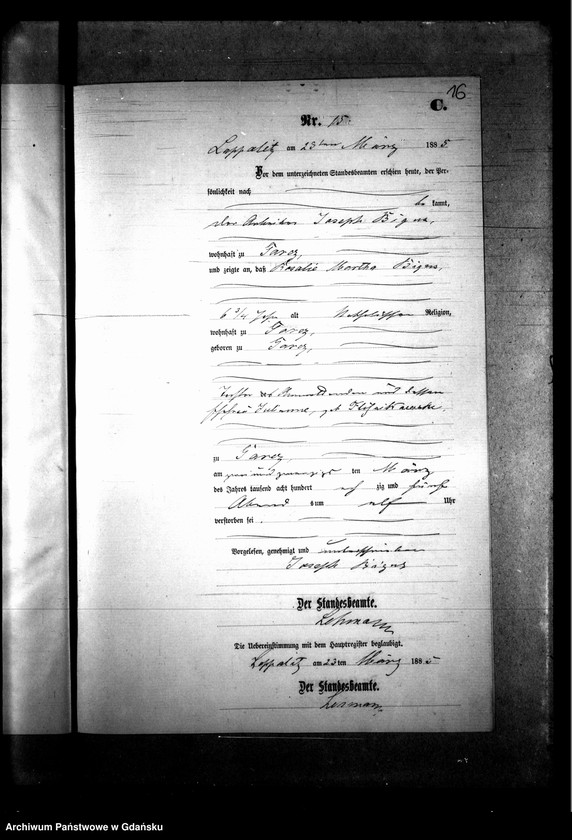 16
C.
Nr. 15.
Loppalitz am 23ten März 1885
Vor dem unterzeichneten Standesbeamten erschien heute, der Per-
sönlichkeit nach
be kannt,
der Arbeiter Joseph Bigus,
wohnhaft zu
und zeigte an, daß Rosalie Martha Bigus,
6 3/4 Jahr alt Katholischer Religion,
wohnhaft zu
geboren zu
Tochter des Anmeldenden und dessen
Ehefrau geb.
zu
am zwei und zwanzigsten März
des Jahres tausend acht hundert acht zig und fünf
Abends um elf Uhr
verstorben sei.
Vorgelesen, genehmigt und unterschrieben
Joseph Bigus
Der Standesbeamte.
Lehmann
Die Uebereinstimmung mit dem Hauptregister beglaubigt.
Loppalitz am 23 ten März 1885
Der Standesbeamte.
Lehmann
Archiwum Państwowe w Gdańsku